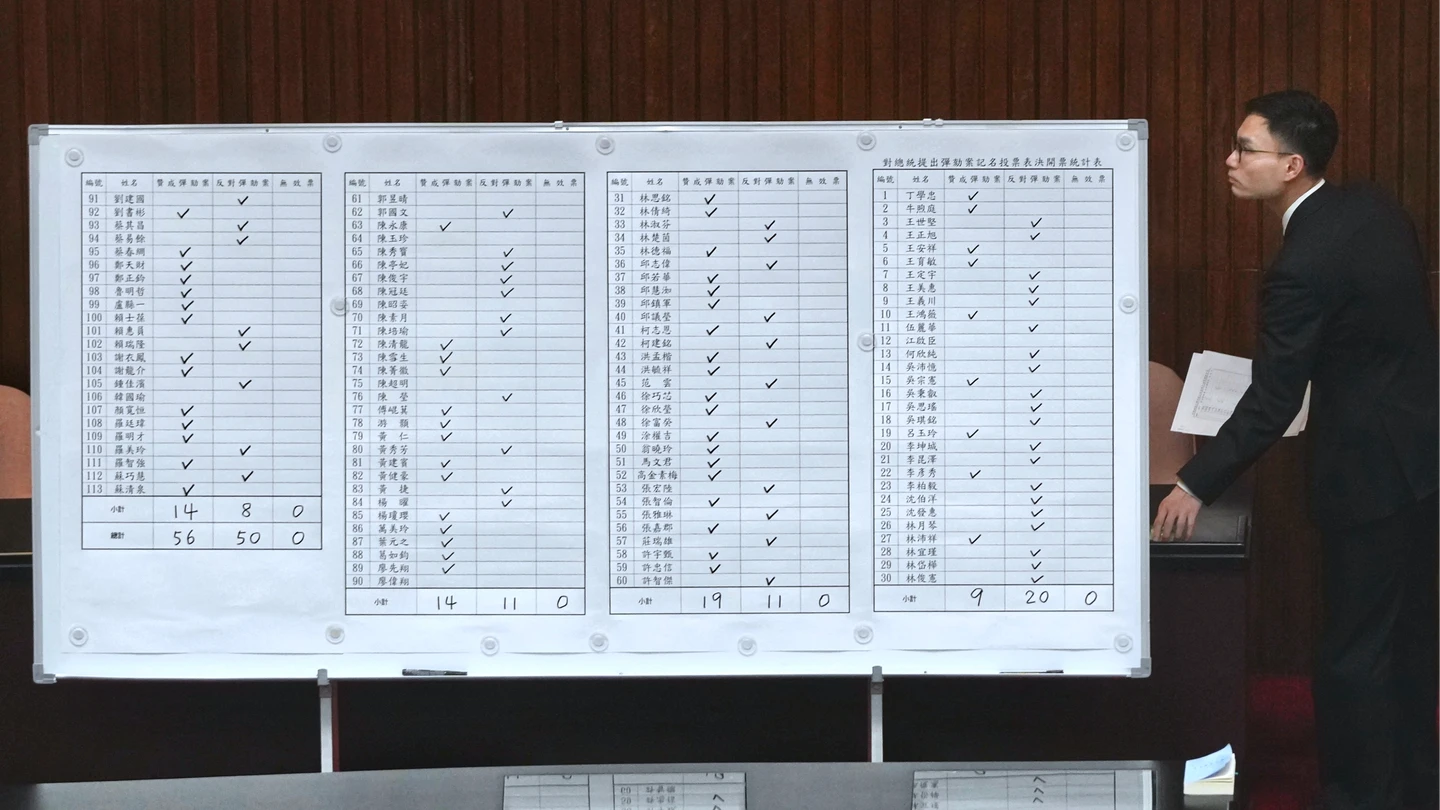 對總統提出彈劾案記名投票表決開票統計表
編號 姓名 贊成彈劾案 反對彈劾案 無效票
1 丁學忠 ✓
2 牛煦庭 ✓
3 王世堅 ✓
4 王正旭 ✓
5 王安祥 ✓
6 王育敏 ✓
7 王定宇 ✓
8 王美惠 ✓
9 王義川 ✓
10 王鴻薇 ✓
11 伍麗華 ✓
12 江啟臣
13 何欣純 ✓
14 吳沛憶 ✓
15 吳宗憲 ✓
16 吳秉叡 ✓
17 吳思瑤 ✓
18 吳琪銘 ✓
19 呂玉玲 ✓
20 李坤城 ✓
21 李昆澤 ✓
22 李彥秀 ✓
23 李柏毅 ✓
24 沈伯洋 ✓
25 沈發惠 ✓
26 林月琴 ✓
27 林沛祥 ✓
28 林宜瑾 ✓
29 林岱樺 ✓
30 林俊憲 ✓
小計 9 20 0
編號 姓名 贊成彈劾案 反對彈劾案 無效票
31 林思銘 ✓
32 林倩綺 ✓
33 林淑芬 ✓
34 林楚茵 ✓
35 林德福 ✓
36 邱志偉 ✓
37 邱若華 ✓
38 邱慧洳 ✓
39 邱鎮軍 ✓
40 邱議瑩 ✓
41 柯志恩 ✓
42 柯建銘 ✓
43 洪孟楷 ✓
44 洪毓祥 ✓
45 范 雲 ✓
46 徐巧芯 ✓
47 徐欣瑩 ✓
48 徐富癸 ✓
49 涂權吉 ✓
50 翁曉玲 ✓
51 馬文君 ✓
52 高金素梅 ✓
53 張宏陸 ✓
54 張智倫 ✓
55 張雅琳 ✓
56 張嘉郡 ✓
57 莊瑞雄 ✓
58 許宇甄 ✓
59 許忠信 ✓
60 許智傑 ✓
小計 19 11 0
編號 姓名 贊成彈劾案 反對彈劾案 無效票
61 郭昱晴
62 郭國文 ✓
63 陳永康 ✓
64 陳玉珍
65 陳秀寳 ✓
66 陳亭妃 ✓
67 陳俊宇 ✓
68 陳冠廷 ✓
69 陳昭姿
70 陳素月 ✓
71 陳培瑜 ✓
72 陳清龍 ✓
73 陳雪生 ✓
74 陳菁徽 ✓
75 陳超明
76 陳 瑩 ✓
77 傅崐萁 ✓
78 游 顥 ✓
79 黃 仁 ✓
80 黃秀芳 ✓
81 黃建賓 ✓
82 黃健豪 ✓
83 黃 捷 ✓
84 楊 曜 ✓
85 楊瓊瓔 ✓
86 萬美玲 ✓
87 葉元之 ✓
88 葛如鈞 ✓
89 廖先翔 ✓
90 廖偉翔
小計 14 11 0
編號 姓名 贊成彈劾案 反對彈劾案 無效票
91 劉建國 ✓
92 劉書彬 ✓
93 蔡其昌 ✓
94 蔡易餘 ✓
95 蔡春綢 ✓
96 鄭天財 ✓
97 鄭正鈐 ✓
98 魯明哲 ✓
99 盧縣一 ✓
100 賴士葆 ✓
101 賴惠員 ✓
102 賴瑞隆 ✓
103 謝衣鳯 ✓
104 謝龍介 ✓
105 鍾佳濱 ✓
106 韓國瑜
107 顏寬恒 ✓
108 羅廷瑋 ✓
109 羅明才 ✓
110 羅美玲 ✓
111 羅智強 ✓
112 蘇巧慧 ✓
113 蘇清泉 ✓
小計 14 8 0
總計 56 50 0